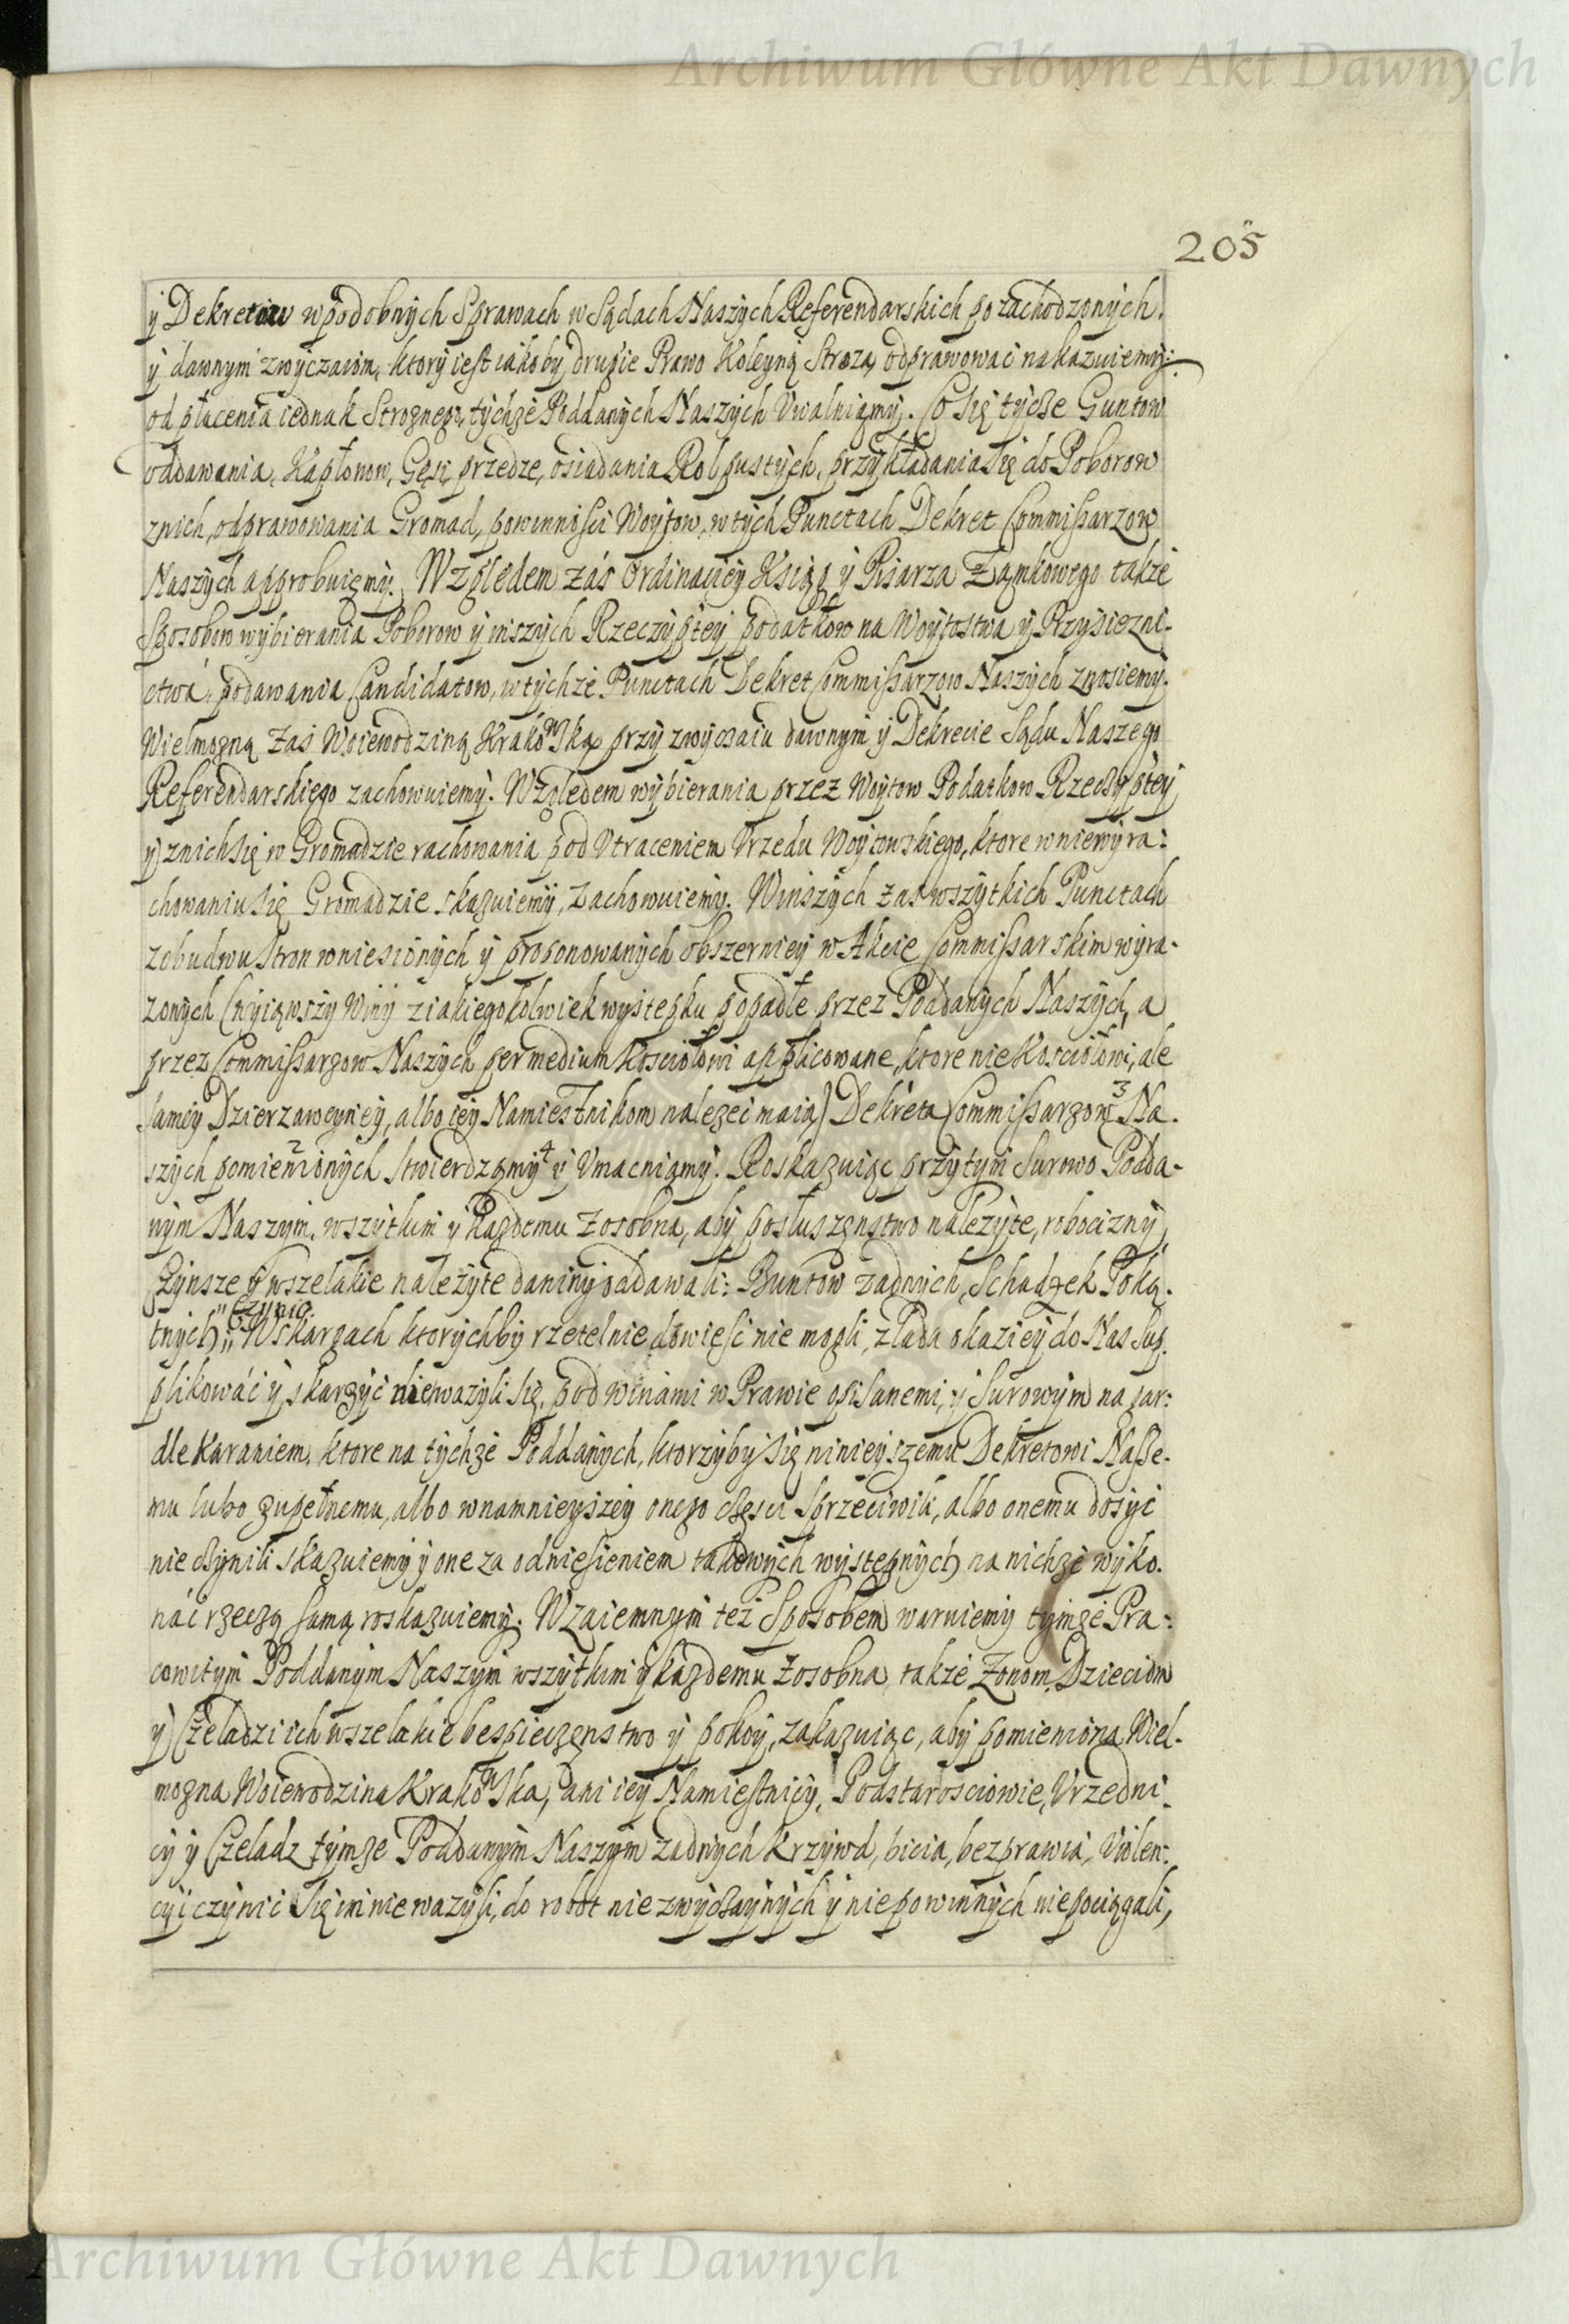 Archiwum Główne Akt Dawnych
205
y Dekretow w podobnych Sprawach w Sądach Naszych Referendarskich pozachodzonych.
y dawnym zwyczaiom, ktory iest iakoby drugie Prawo Koleyną Strożą odprawować nakazuiemy:
od płacenia iednak Strożnego, tychże Poddanych Naszych Uwalniamy. Co się tycze Guntow
oddawania, Kapłonow, Gęsi, przedze, osiadania Rol pustych, przykładania się do Poborow
znich, odprawowania Gromad, powinności Woytow, w tych Punctach Dekret Commissarzow
Naszych approbuiemy. Względem zaś Ordinaciey Ksiąg y Pisarza Zamkowego także
Sposobow wybierania Poborow y inszych Rzeczyptey podatkow na Woytostwa y Przysiezni-
ctwa, podawania Candidatow, w tychże Punctach Dekret Commissarzow Naszych znosiemy.
Wielmożną zaś Woiewodziną Krakowską przy zwyczaiu dawnym y Dekrecie Sądu Naszego
Referendarskiego zachowuiemy. Względem wybierania przez Woytow Podatkow Rzeczyptey
y znich się w Gromadzie rachowania pod Utraceniem Urzedu Woytowskiego, ktore w niewyra:
chowaniu się Gromadzie skazuiemy, zachowuiemy. W inszych zaś wszytkich Punctach
z obudwu stron wniesionych y proponowanych obszerniey w Akcie Commissarskim wyra-
zonych (wyiąwszy Winy z iakiegokolwiek wystepku popadłe przez Poddanych Naszych, a
przez Commissarzow Naszych per medium Kosciołowi applicowane, ktore nie Kosciołowi, ale
samey Dzierzawcyniey, albo iey Namiestnikom nalezeć maią) Dekreta Commissarzow 3 Na-
szych pomienionych 2 stwierdzamy 4 y Umacniamy. Roskazuiąc przytym surowo Podda-
nym Naszym, wszytkim y Kazdemu z osobna, aby posłuszenstwo nalezyte, robocizny,
Czynsze y wszelakie należyte daniny oddawali: Buntow zadnych, Schadzek Poką-
tnych, " czynio.
" W skargach ktorychby rzetelnie dowieść nie mogli, z lada okaziey do Nas sup-
plikować y skarzyć nie wazyli się, pod winami w Prawie opisanemi, y surowym na gar:
dle Karaniem, ktore na tychże Poddanych, ktorzyby się ninieyszemu Dekretowi Nasze-
mu lubo zupełnemu, albo w namnieyszey onego części sprzeciwili, albo onemu dosyć
nie czynili skazuiemy y one za odniesieniem takowych wystepnych na nichże wyko-
nać rzeczą samą roskazuiemy. Wzaiemnym też Sposobem waruiemy tymże Pra:
cowitym Poddanym Naszym wszytkim y każdemu z osobna, także Zonom, Dzieciom
y Czeladzi ich wszelakie bespieczenstwo y pokoy, zakazuiąc, aby pomieniona Wiel-
mozna Woiewodzina Krakowska, ani iey Namiestnicy, Podstarosciowie, Urzedni-
cy y Czeladz tymże Poddanym Naszym zadnych krzywd, bicia, bezprawia, Violen:
cyi czynić się im nie wazyli, do robot niezwyczaynych y niepowinnych niepociągali,
Archiwum Główne Akt Dawnych